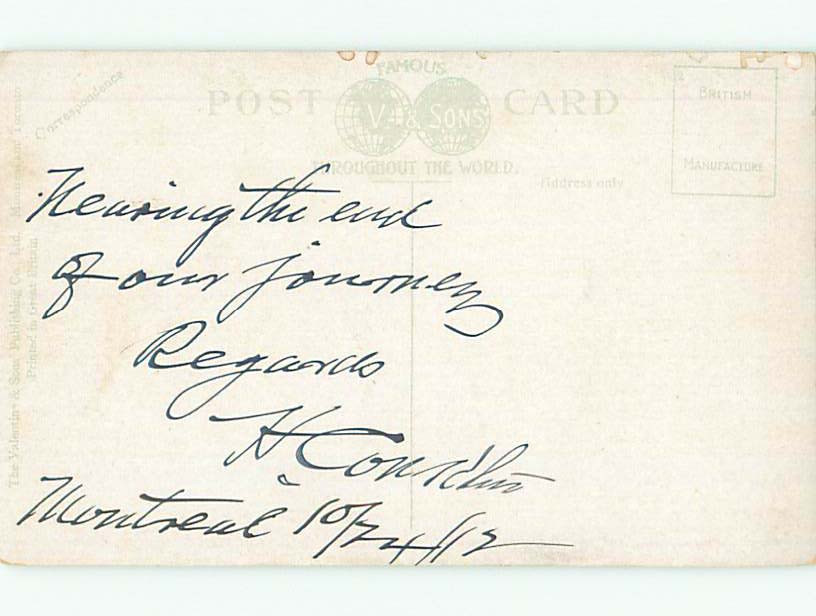 FAMOUS
POST CARD
V. & SONS
THROUGHOUT THE WORLD.
BRITISH
MANUFACTURE
Correspondence
Address only
The Valentine & Sons Publishing Co., Ltd., Montreal and Toronto
Printed in Great Britain
Nearing the end
of our journey
Regards
H
Montreal 10/24/12